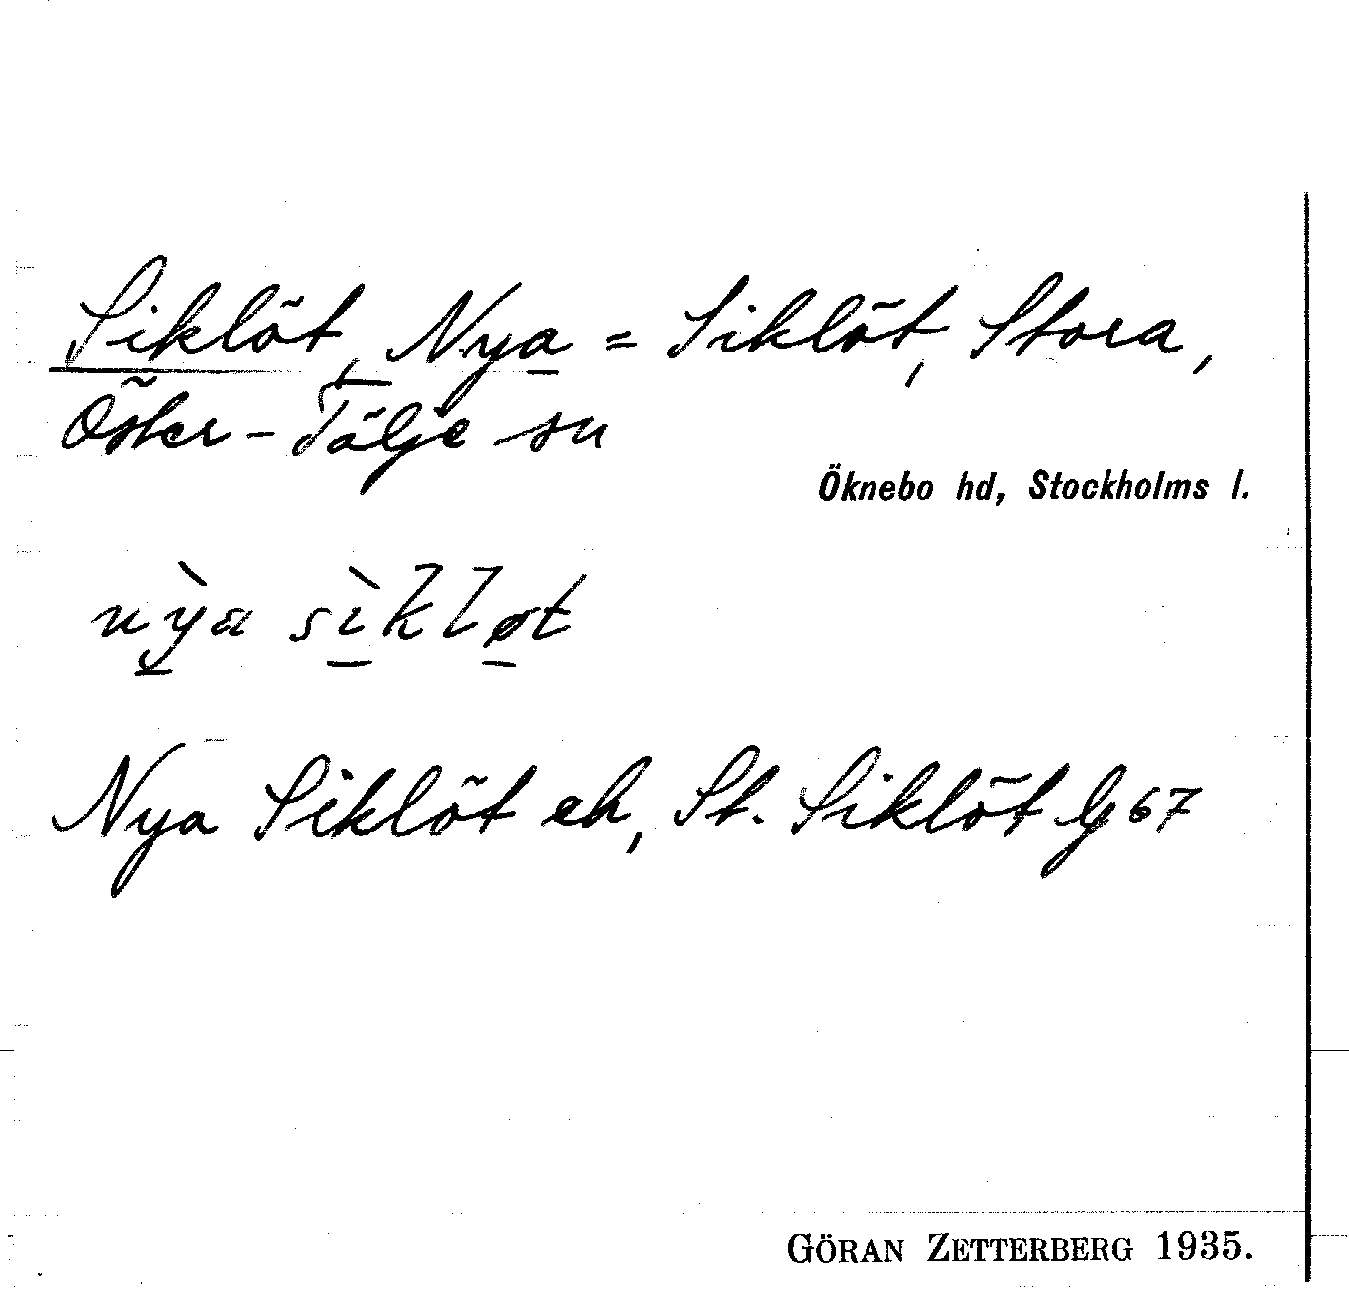 Siklöt, Nya = Siklöt, Stora,
Öster-Tälje sn
Öknebo hd, Stockholms l.
nỳa sìkløt
Nya Siklöt ek, St. Siklöt Gg 67
GÖRAN ZETTERBERG 1935.